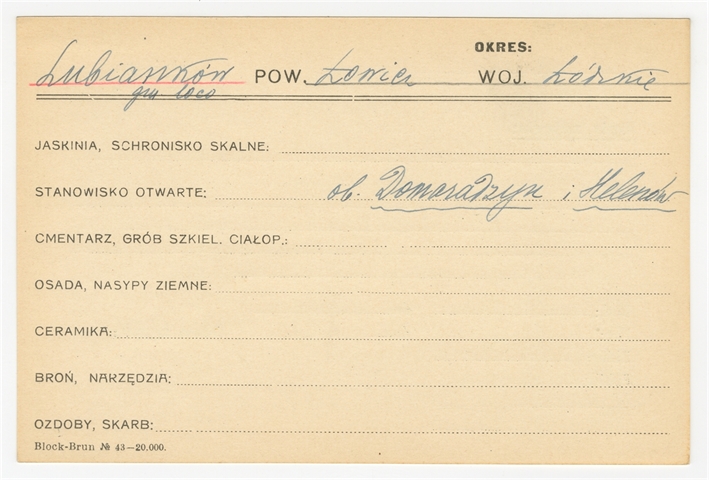 OKRES:
Lubianków POW. Łowicz WOJ. Łódzkie
gm loco
JASKINIA, SCHRONISKO SKALNE:
STANOWISKO OTWARTE: ob. Domaradzyn i Helenów
CMENTARZ, GRÓB SZKIEL. CIAŁOP.:
OSADA, NASYPY ZIEMNE:
CERAMIKA:
BROŃ, NARZĘDZIA:
OZDOBY, SKARB:
Block-Brun № 43—20.000.